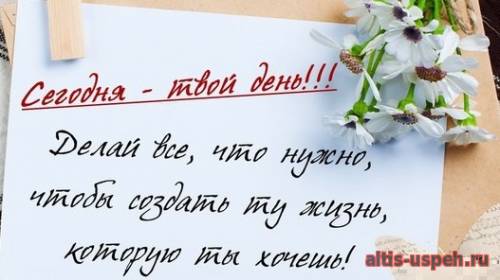 Сегодня - твой день!!!
Делай все, что нужно,
чтобы создать ту жизнь,
которую ты хочешь!
altis-uspeh.ru